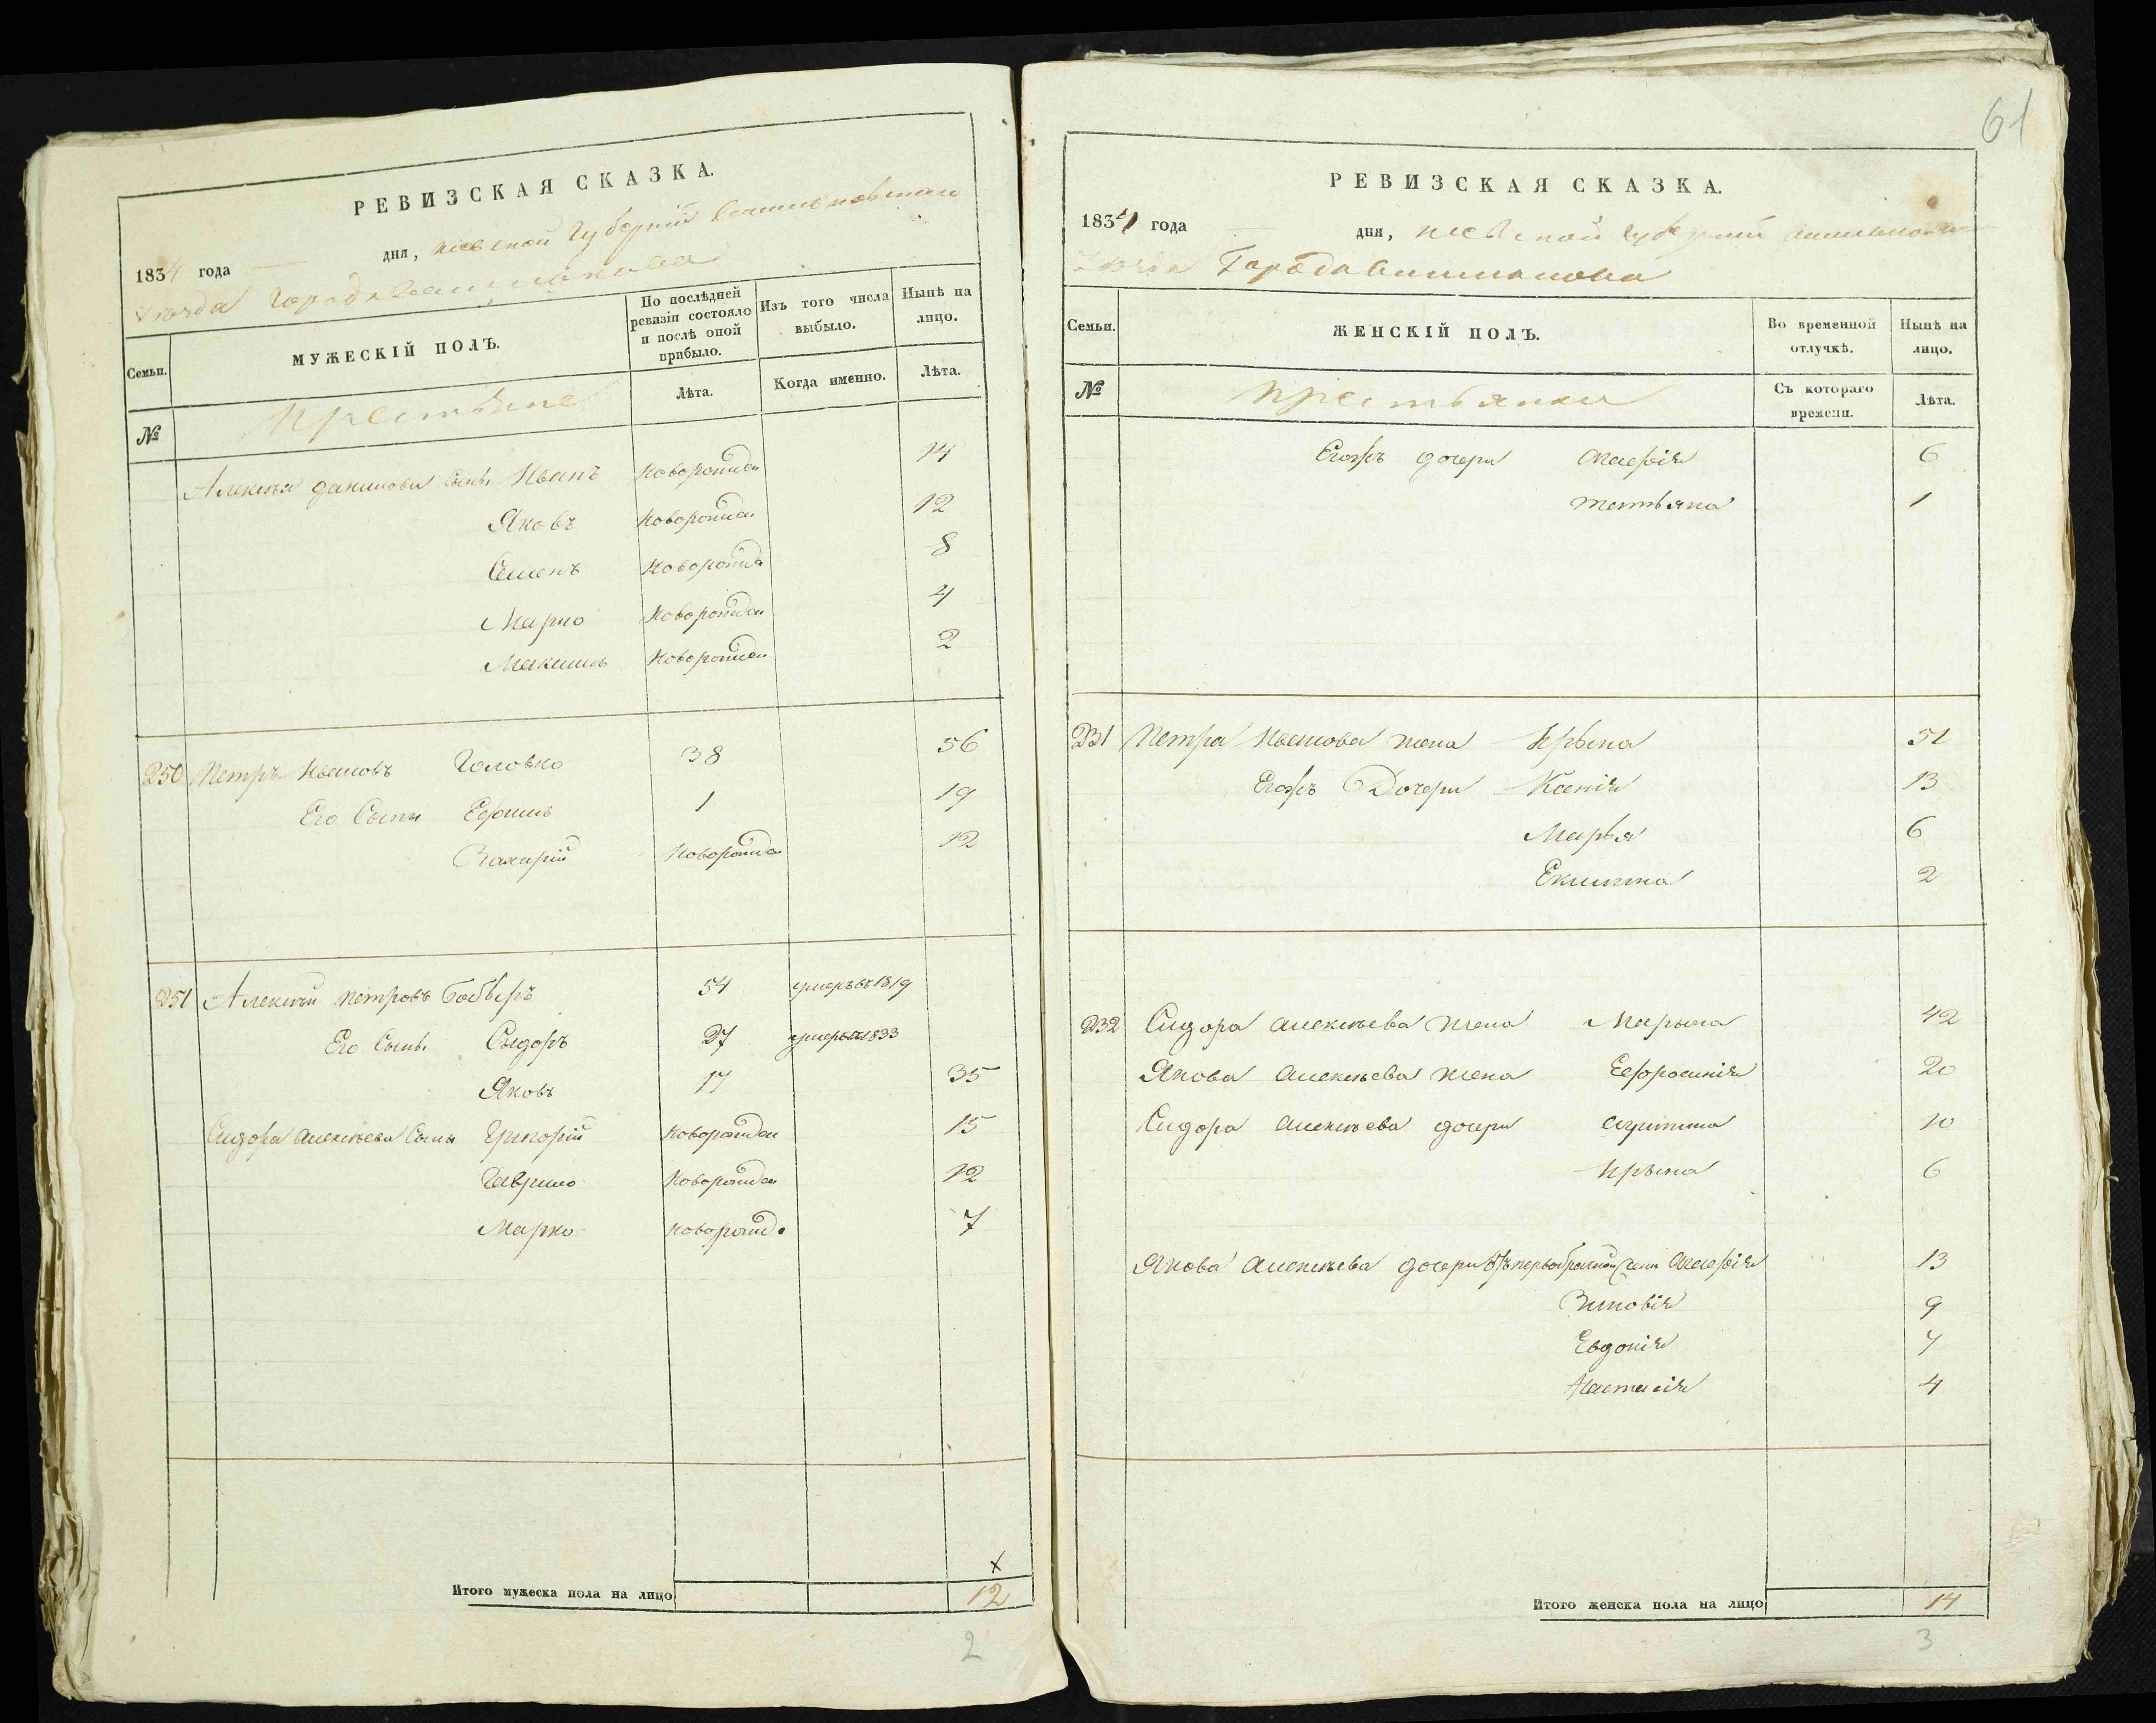 РЕВИЗСКАЯ СКАЗКА.
1834 года дня, Киевской Губерніи Васильковскаго
Уѣзда Города Василькова
Семьи. МУЖЕСКІЙ ПОЛЪ. По послѣдней ревизіи состояло и послѣ оной прибыло. Изъ того числа выбыло. Нынѣ на лицо.
№ Крестьяне Лѣта. Когда именно. Лѣта.
Алексея Данилова Сынъ Иванъ Новорожден 14
Яковъ Новорожден 12
Семенъ Новорожд 8
Марко Новорожден 4
Максимъ Новорожден 2
250 Петръ Ивановъ Головко 38 56
Его Сыны Ефимъ 1 19
Захарій Новорожден 12
251 Алексѣй Петровъ Бобыръ 54 умеръ въ 1819
Его Сынъ Сыдоръ 27 умеръ въ 1833
Яковъ 17 35
Сидора Алексѣева Сыны Григорій Новорожден 15
Гаврило Новорожден 12
Марко Новорожд 7
Итого мужеска пола на лицо 12
2
61
РЕВИЗСКАЯ СКАЗКА.
1834 года дня, Киевской Губерніи
Города Василькова
Семьи. ЖЕНСКІЙ ПОЛЪ. Во временной отлучкѣ. Нынѣ на лицо.
№ Крестьянки Съ котораго времени. Лѣта.
Егожъ дочери 6
Татьяна 1
231 Петра Иванова жена Ирына 51
Егожъ Дочери Ксенія 13
Марья 6
2
232 Сидора Алексѣева жена Марына 42
Якова Алексѣева жена Ефросинія 20
Сидора Алексѣева дочери 10
Ирына 6
Якова Алексѣева дочери отъ первобрачной жены 13
Зиновія 9
Евдокія 7
Настасія 4
Итого женска пола на лицо 14
3